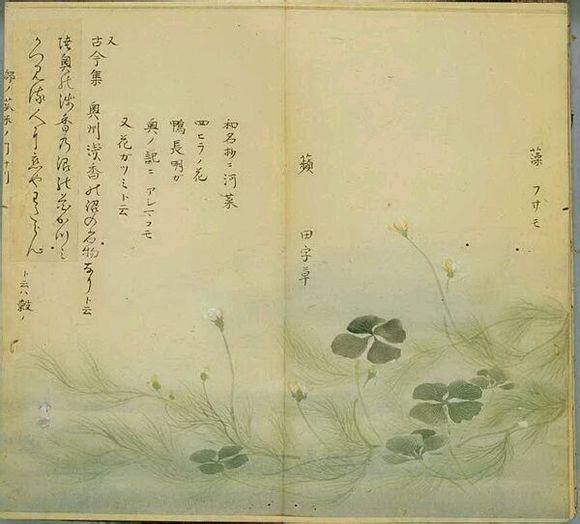 藻 フサモ
蘋 田字草
和名抄ニ河菜
四ヒラノ花
鴨長明が
奥ノ記ニ アレマノモ
又花ガツミト云
又
古今集 奥州浅香の沼の名物なりト云
陸奥の浅香乃沼の花かつミ
かつみる人に恋やわたらん
ト云ハ穀ノ